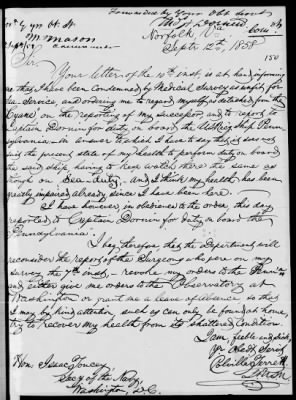 Forwarded by Your Obt Servt
Norfolk Va
Septr 12th, 1858
150
Sir,
Your letter of the 10th inst, is at hand, informing
me that I have been condemned by Medical Survey as unfit for
Sea Service, and ordering me to regard myself as detached from the
Cyane on the reporting of my successor, and to report to
Captain Dornin for duty on board the U.S. Recg Ship Penn-
sylvania. In answer to which I have to say that it is
the present state of my health to perform duty on board
the said ship, duty is hard there the same as
on Sea duty, and I think my health has been
greatly impaired already since I have been here.
I have however, in obedience to the order, this day
reported to Captain Dornin for duty on board the
Pennsylvania.
I beg therefore that the Department will
reconsider the report of the Surgeons who were on my
survey the 7th inst, revoke my orders to the Penna
and either give me orders to the Observatory at
Washington or grant me a leave of absence so that
I may by kind attention, such as can only be found at home,
try to recover my health from its shattered condition.
I am, feeble and sick,
Yr Obedt Servt
Colville Terrett
Hon. Isaac Toucey,
Secy of the Navy,
Washington, D.C.